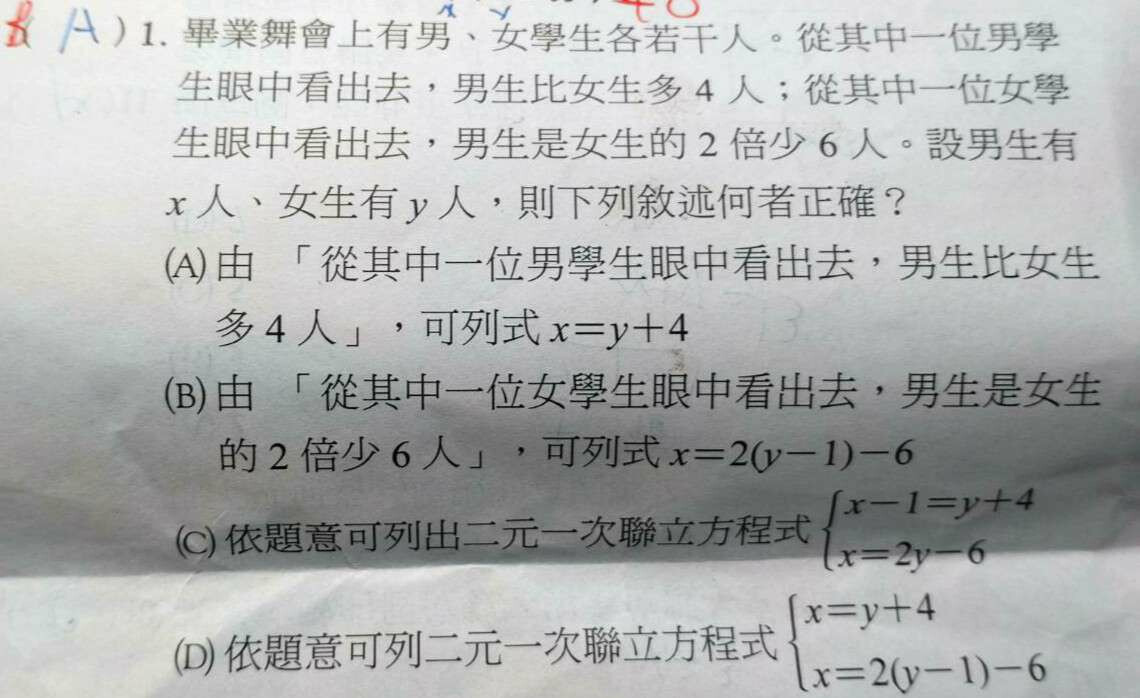 x y 40
B( A )1. 畢業舞會上有男、女學生各若干人。從其中一位男學
生眼中看出去,男生比女生多 4 人;從其中一位女學
生眼中看出去,男生是女生的 2 倍少 6 人。設男生有
x 人、女生有 y 人,則下列敘述何者正確?
(A) 由 「從其中一位男學生眼中看出去,男生比女生
多 4 人」,可列式 x=y+4
(B) 由 「從其中一位女學生眼中看出去,男生是女生
的 2 倍少 6 人」,可列式 x=2(y-1)-6
(C) 依題意可列出二元一次聯立方程式 { x-1=y+4
x=2y-6
(D) 依題意可列二元一次聯立方程式 { x=y+4
x=2(y-1)-6